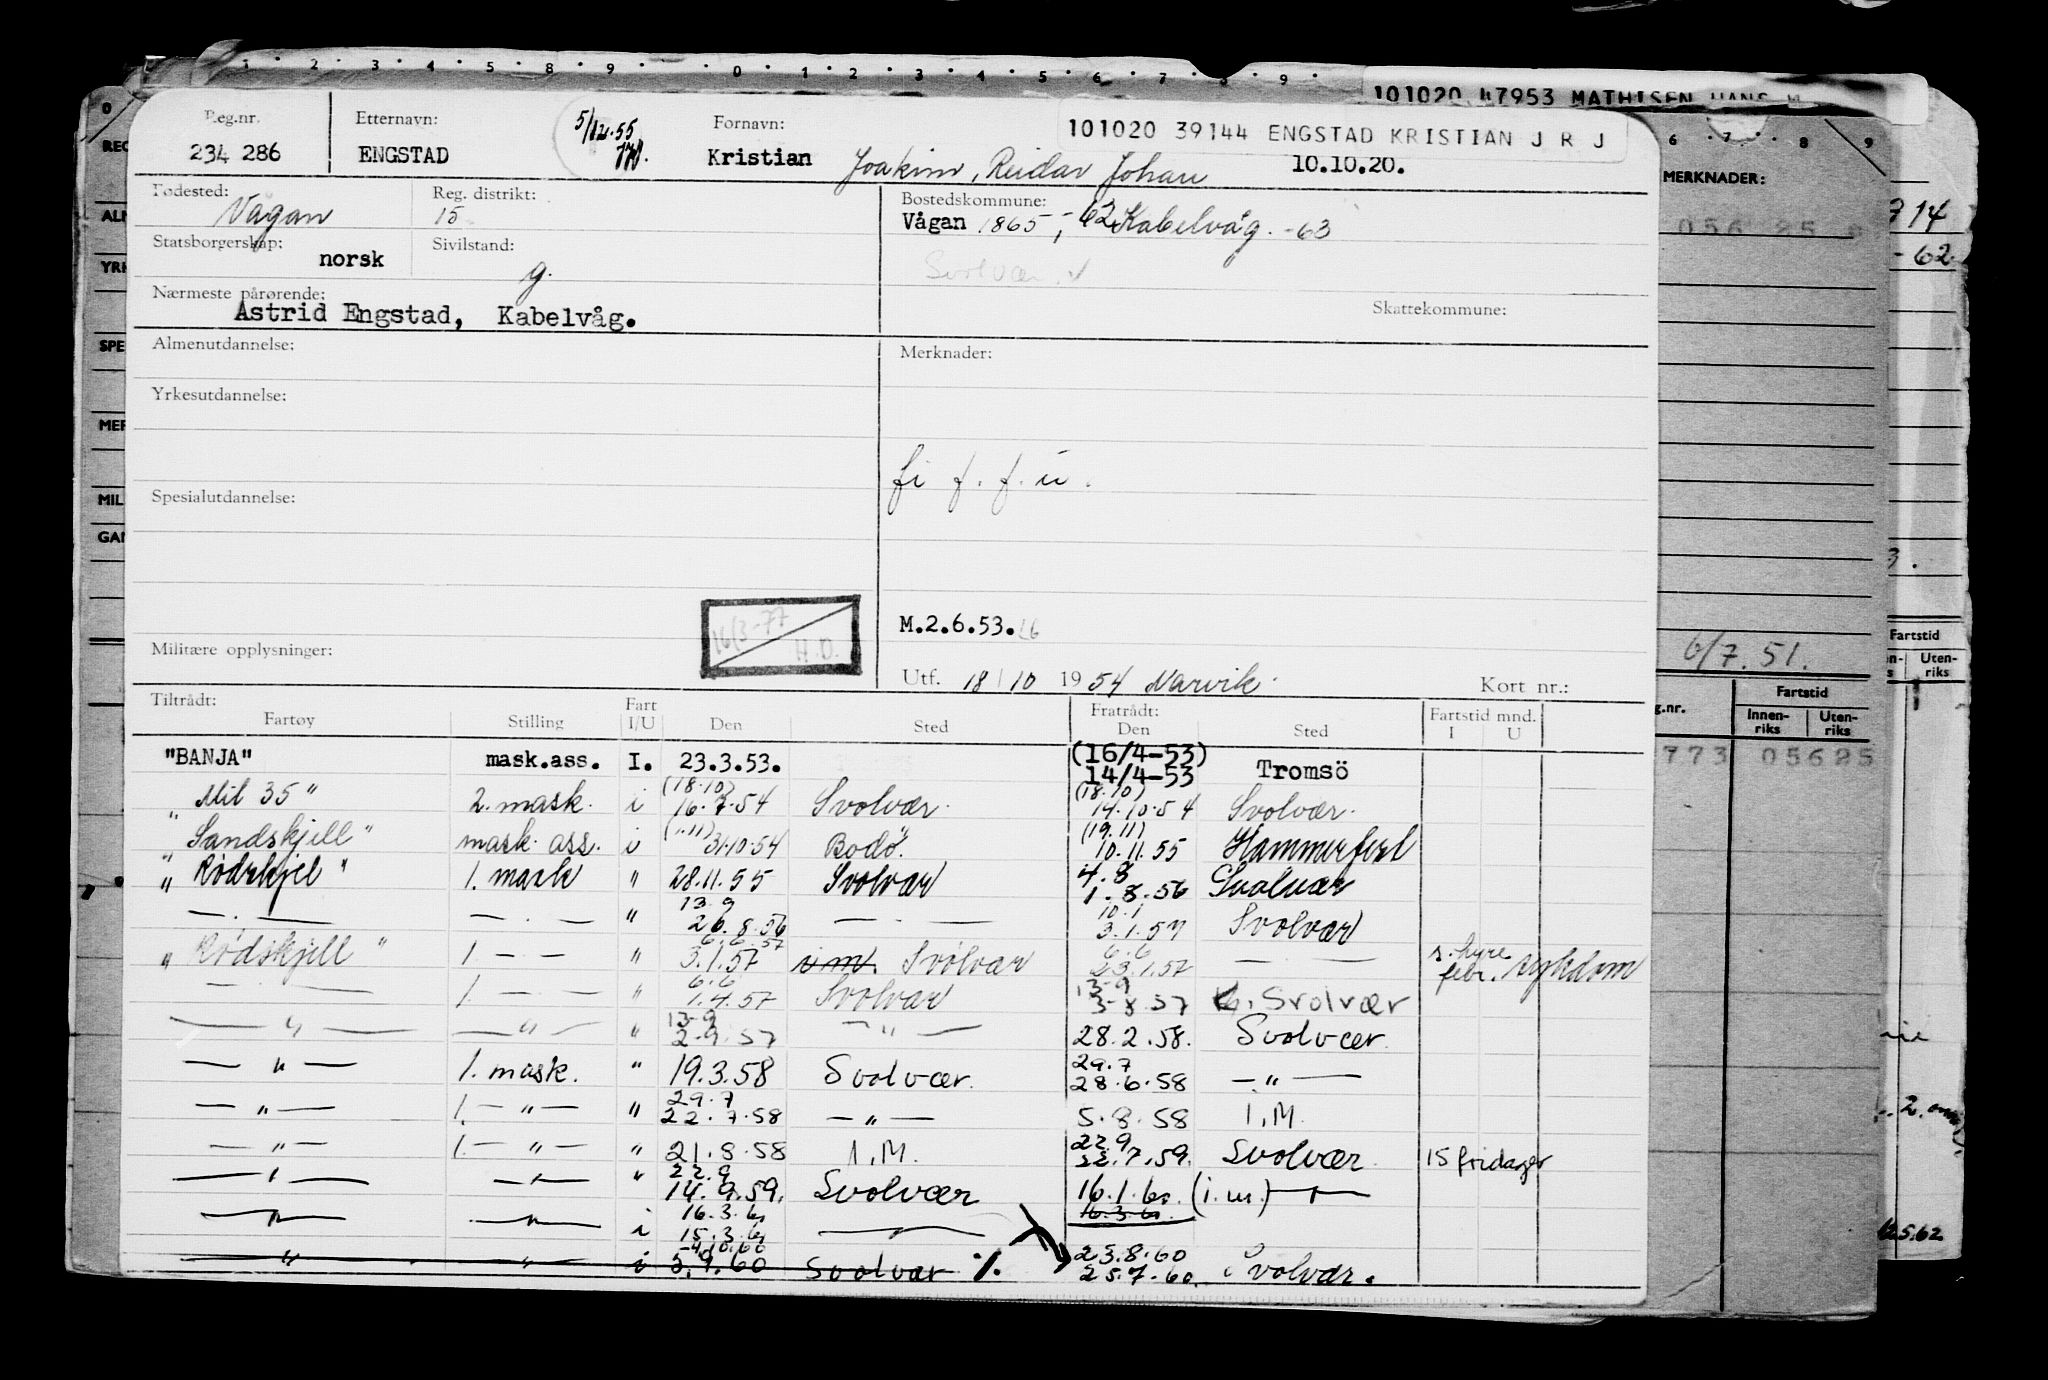 1 2 3 4 5 8 9 0 1 2 3 4 5 6 7 8 9
101020 47953 MATHISEN HANS M
Reg.nr. Etternavn: 5/12.55 Fornavn: 101020 39144 ENGSTAD KRISTIAN J R J
234 286 ENGSTAD Kristian Joakim, Reidar Johan 10.10.20.
Fødested: Vågan Reg. distrikt: 15 Bostedskommune: Vågan 1865, -62 Kabelvåg. -63
Statsborgerskap: norsk Sivilstand: g. Svolvær
Nærmeste pårørende: Skattekommune:
Astrid Engstad, Kabelvåg.
Almenutdannelse: Merknader:
Yrkesutdannelse:
fi f. f. ü.
Spesialutdannelse:
16/3-77 H.O. M.2.6.53.
Militære opplysninger: Utf. 18/10 1954 Narvik. Kort nr.:
Tiltrådt: Fart Fratrådt: Fartstid mnd.
Fartøy Stilling I/U Den Sted Den Sted I U
"BANJA" mask.ass. I. 23.3.53. (16/4-53) 14/4-53 Tromsö
"Mil 35" 2. mask. i (18.10) 16.7.54 Svolvær. (18.10) 14.10.54 Svolvær.
"Sandskjell" mask. ass. i (1.11) 31.10.54 Bodö. (19.11) 10.11.55 Hammerfest
"Rödskjel" 1. mask " 28.11.55 Svolvær 4.8 1.8.56 Svolvær
— . — — . — " 13.9 26.8.56 — . — 10.1 3.1.57 Svolvær
"Rödskjell" 1. — - — " 6.6.57 3.1.57 i.m. Svolvær 6.6 23.1.57 — — s. hyre febr. sykdom
— . — 1. — - — " 6.6 1.4.57 Svolvær 13-9 3-8.57 Svolvær
— " — — " — " 13-9 2-9.57 — " — 28.2.58. Svolvær.
— " — 1. mask. " 19.3.58 Svolvær. 29.7 28.6.58 — " —
— " — 1. — " — " 29.7 22.7.58 — " — 5.8.58 I.M.
— " — 1. — " — " 21.8.58 I.M. 22.9 22.7.59. Svolvær. 15 fridager
— " — — " — " 22.9 14.9.59. Svolvær 16.1.60. (i.m.) — " —
— " — — " — i 16.3.60 15.3.60 — " — 16.3.60.
— " — " i -4.10.60 5.9.60 Svolvær %. 23.8.60 25.7.60. Svolvær.
MERKNADER:
056 25
714
-62.
6/7.51.
Fartstid
Uten-riks
Fartstid
g.nr. Innen-riks Uten-riks
773 05625
REG
ALM
YRK
SPE
MER
MIL
GAN